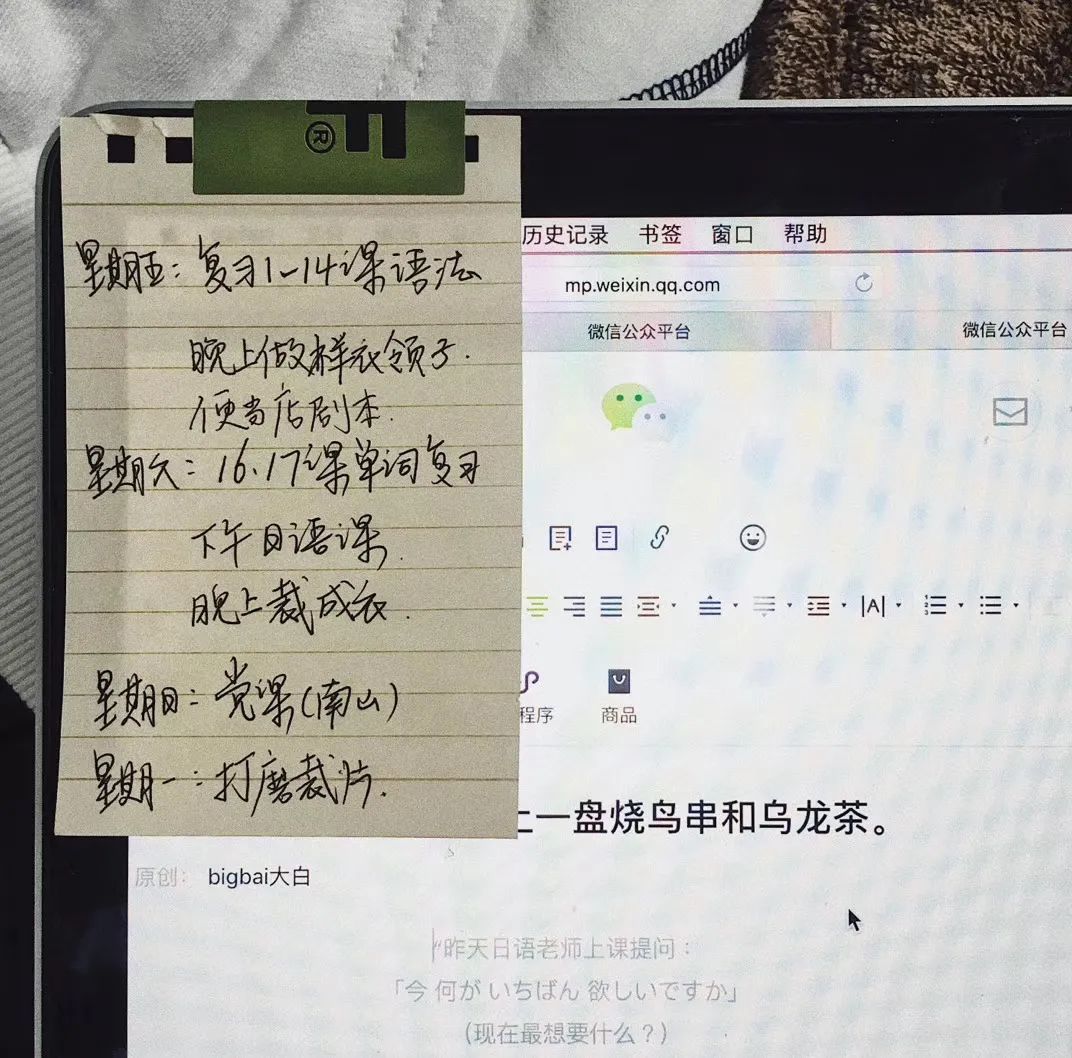 ®
星期五：复习1-14课语法
晚上做样衣领子.
便当店剧本.
星期六：16.17课单词复习
下午日语课.
晚上裁成衣.
星期日：党课(南山)
星期一：打磨裁片.
历史记录 书签 窗口 帮助
mp.weixin.qq.com
微信公众平台 微信公众平台
程序 商品
上一盘烧鸟串和乌龙茶。
原创： bigbai大白
“昨天日语老师上课提问：
「今 何が いちばん 欲しいですか」
（现在最想要什么？）